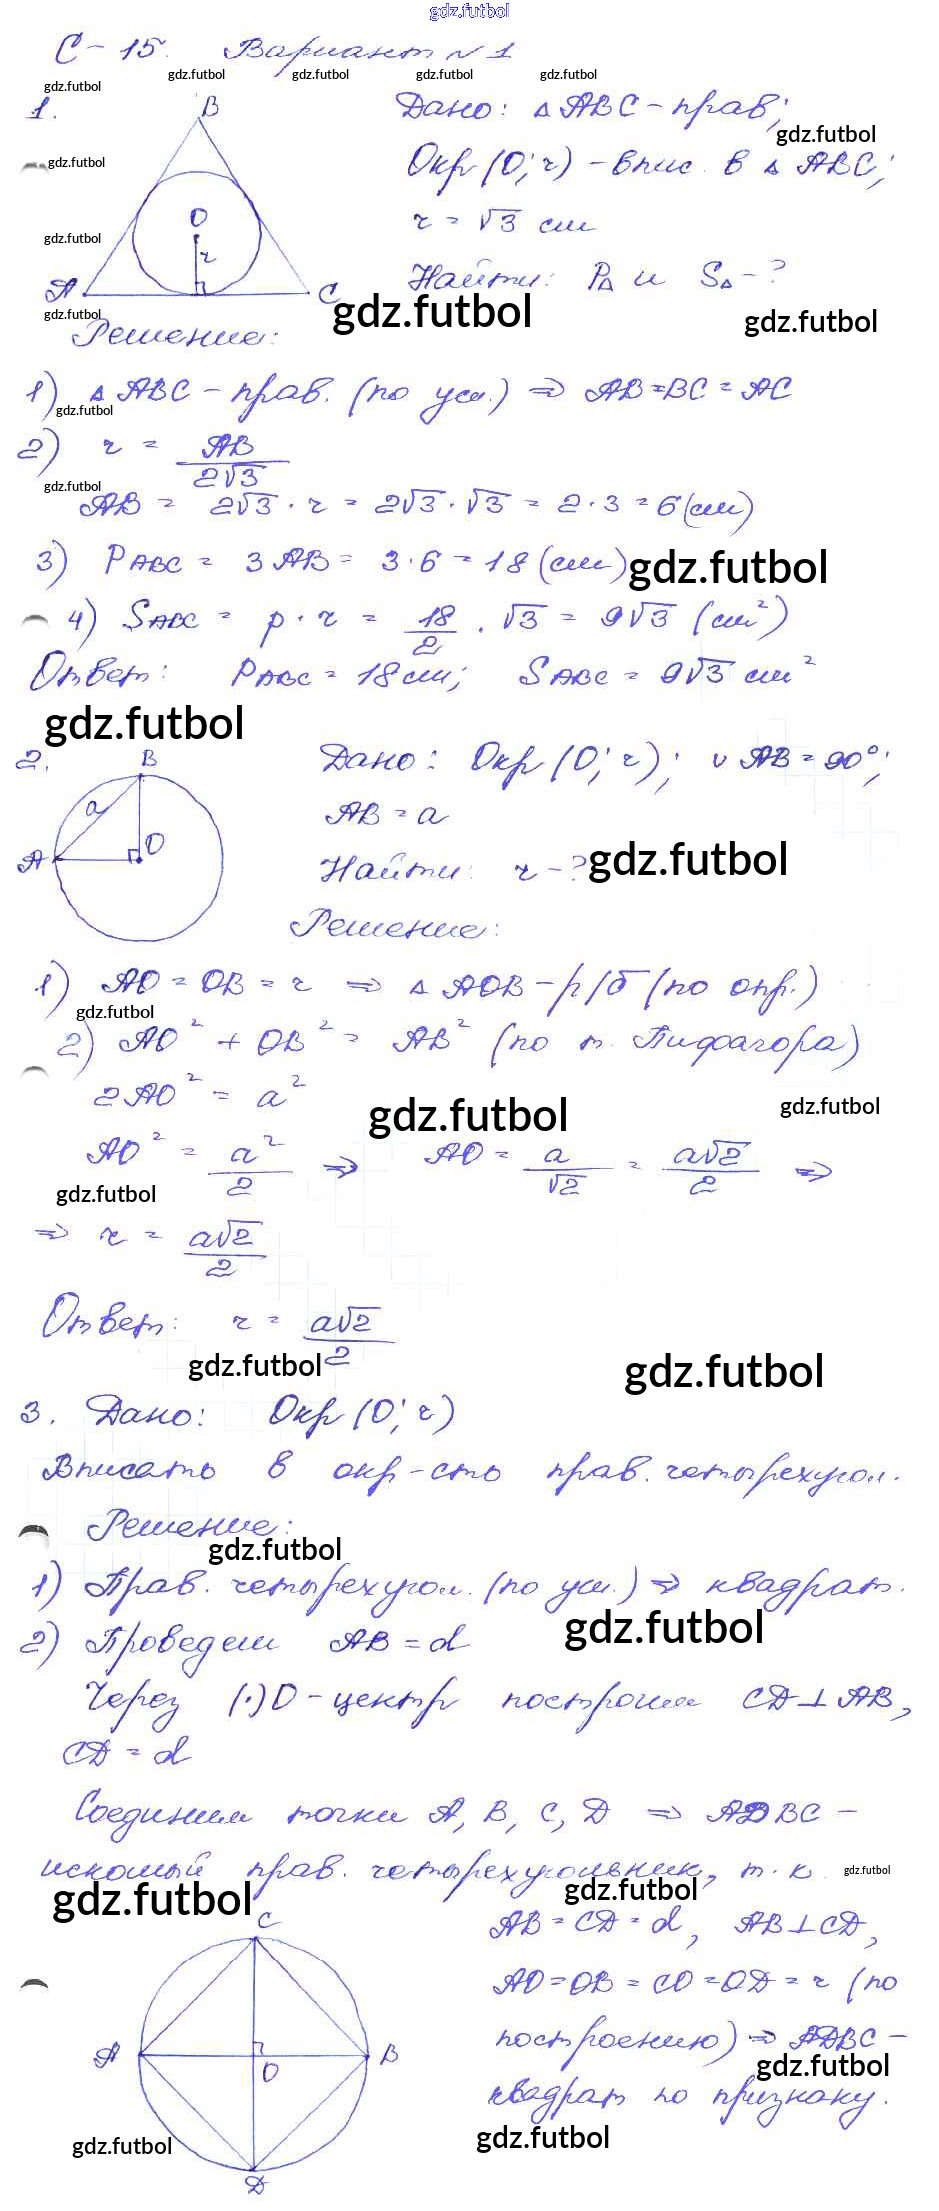 gdz.futbol
С-15. Вариант №1
gdz.futbol gdz.futbol gdz.futbol gdz.futbol gdz.futbol
1.
B
A
C
O
r
Дано: △ABC - прав;
gdz.futbol
gdz.futbol
Окр(O; r) - впис. в △ABC;
r = √3 см
gdz.futbol
Найти: P△ и S△ - ?
gdz.futbol gdz.futbol gdz.futbol
Решение:
1) △ABC - прав. (по усл.) ⇒ AB=BC=AC
gdz.futbol
2) r = AB/2√3
gdz.futbol
AB = 2√3 · r = 2√3 · √3 = 2·3 = 6 (см)
3) PABC = 3AB = 3·6 = 18 (см)
gdz.futbol
4) SABC = p · r = 18/2 · √3 = 9√3 (см²)
Ответ: PABC = 18см; SABC = 9√3 см²
gdz.futbol
2.
B
a
A
O
Дано: Окр(O; r); ∪AB = 90°;
AB = a
Найти: r - ?
gdz.futbol
Решение:
1) AO = OB = r ⇒ △AOB - р/б (по опр.)
gdz.futbol
2) AO² + OB² = AB² (по т. Пифагора)
2AO² = a²
gdz.futbol gdz.futbol
AO² = a²/2 ⇒ AO = a/√2 = a√2/2 ⇒
gdz.futbol
⇒ r = a√2/2
Ответ: r = a√2/2
gdz.futbol gdz.futbol
3. Дано: Окр(O; r)
Вписать в окр-сть прав. четырехугол.
Решение:
gdz.futbol
1) Прав. четырехугол. (по усл.) ⇒ квадрат.
gdz.futbol
2) Проведем AB = d
Через (·)O - центр построим CD⊥AB,
CD = d
Соединим точки A, B, C, D ⇒ ADBC -
искомый прав. четырехугольник, т.к.
gdz.futbol
gdz.futbol gdz.futbol
AB = CD = d, AB⊥CD,
AO=OB=CO=OD=r (по
построению) ⇒ ADBC -
gdz.futbol
квадрат по признаку.
gdz.futbol
C
A
B
O
D
gdz.futbol